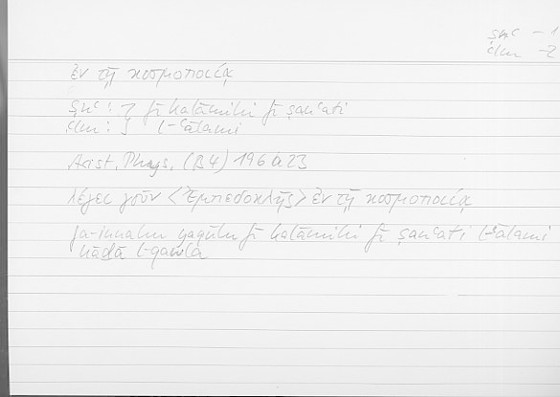 ṣnʿ – 1
ʿlm – 2
ἐν τῇ κοσμοποιίᾳ
ṣnʿ : fī kalāmihi fī ṣanʿati
ʿlm : l-ʿālami
Arist. Phys. (B4) 196 a 23
λέγει γοῦν <Ἐμπεδοκλῆς> ἐν τῇ κοσμοποιίᾳ
fa-innahu yaqūlu fī kalāmihi fī ṣanʿati l-ʿālami
hāḏā l-qawla